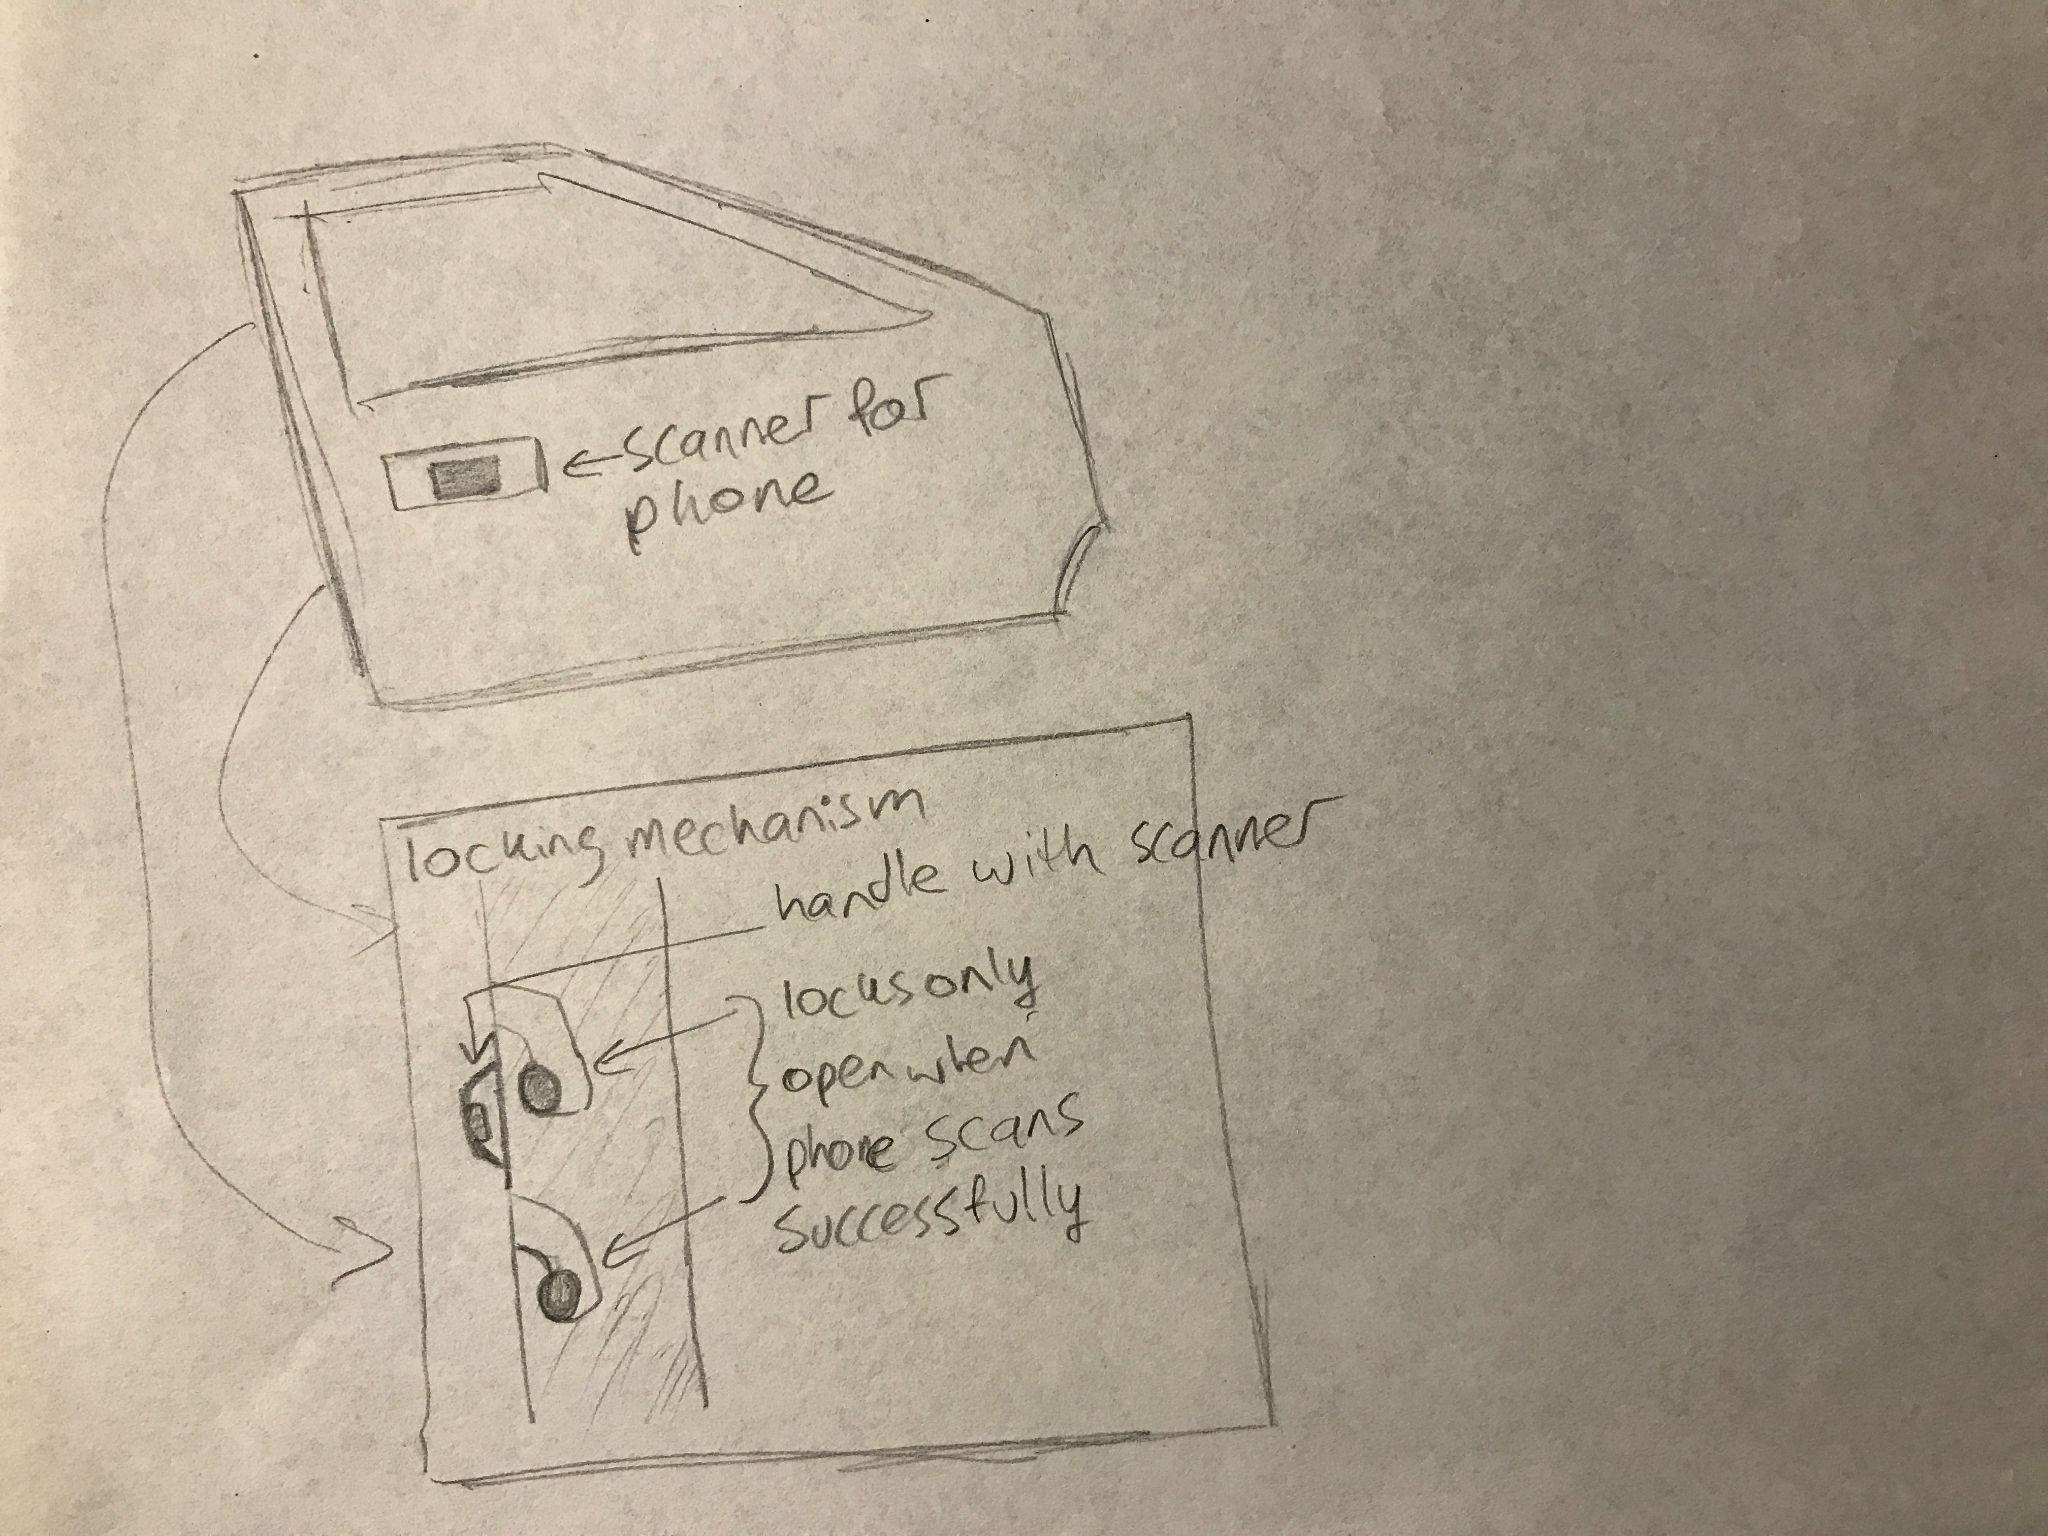 scanner for
phone
locking mechanism
handle with scanner
locks only
open when
phone scans
successfully